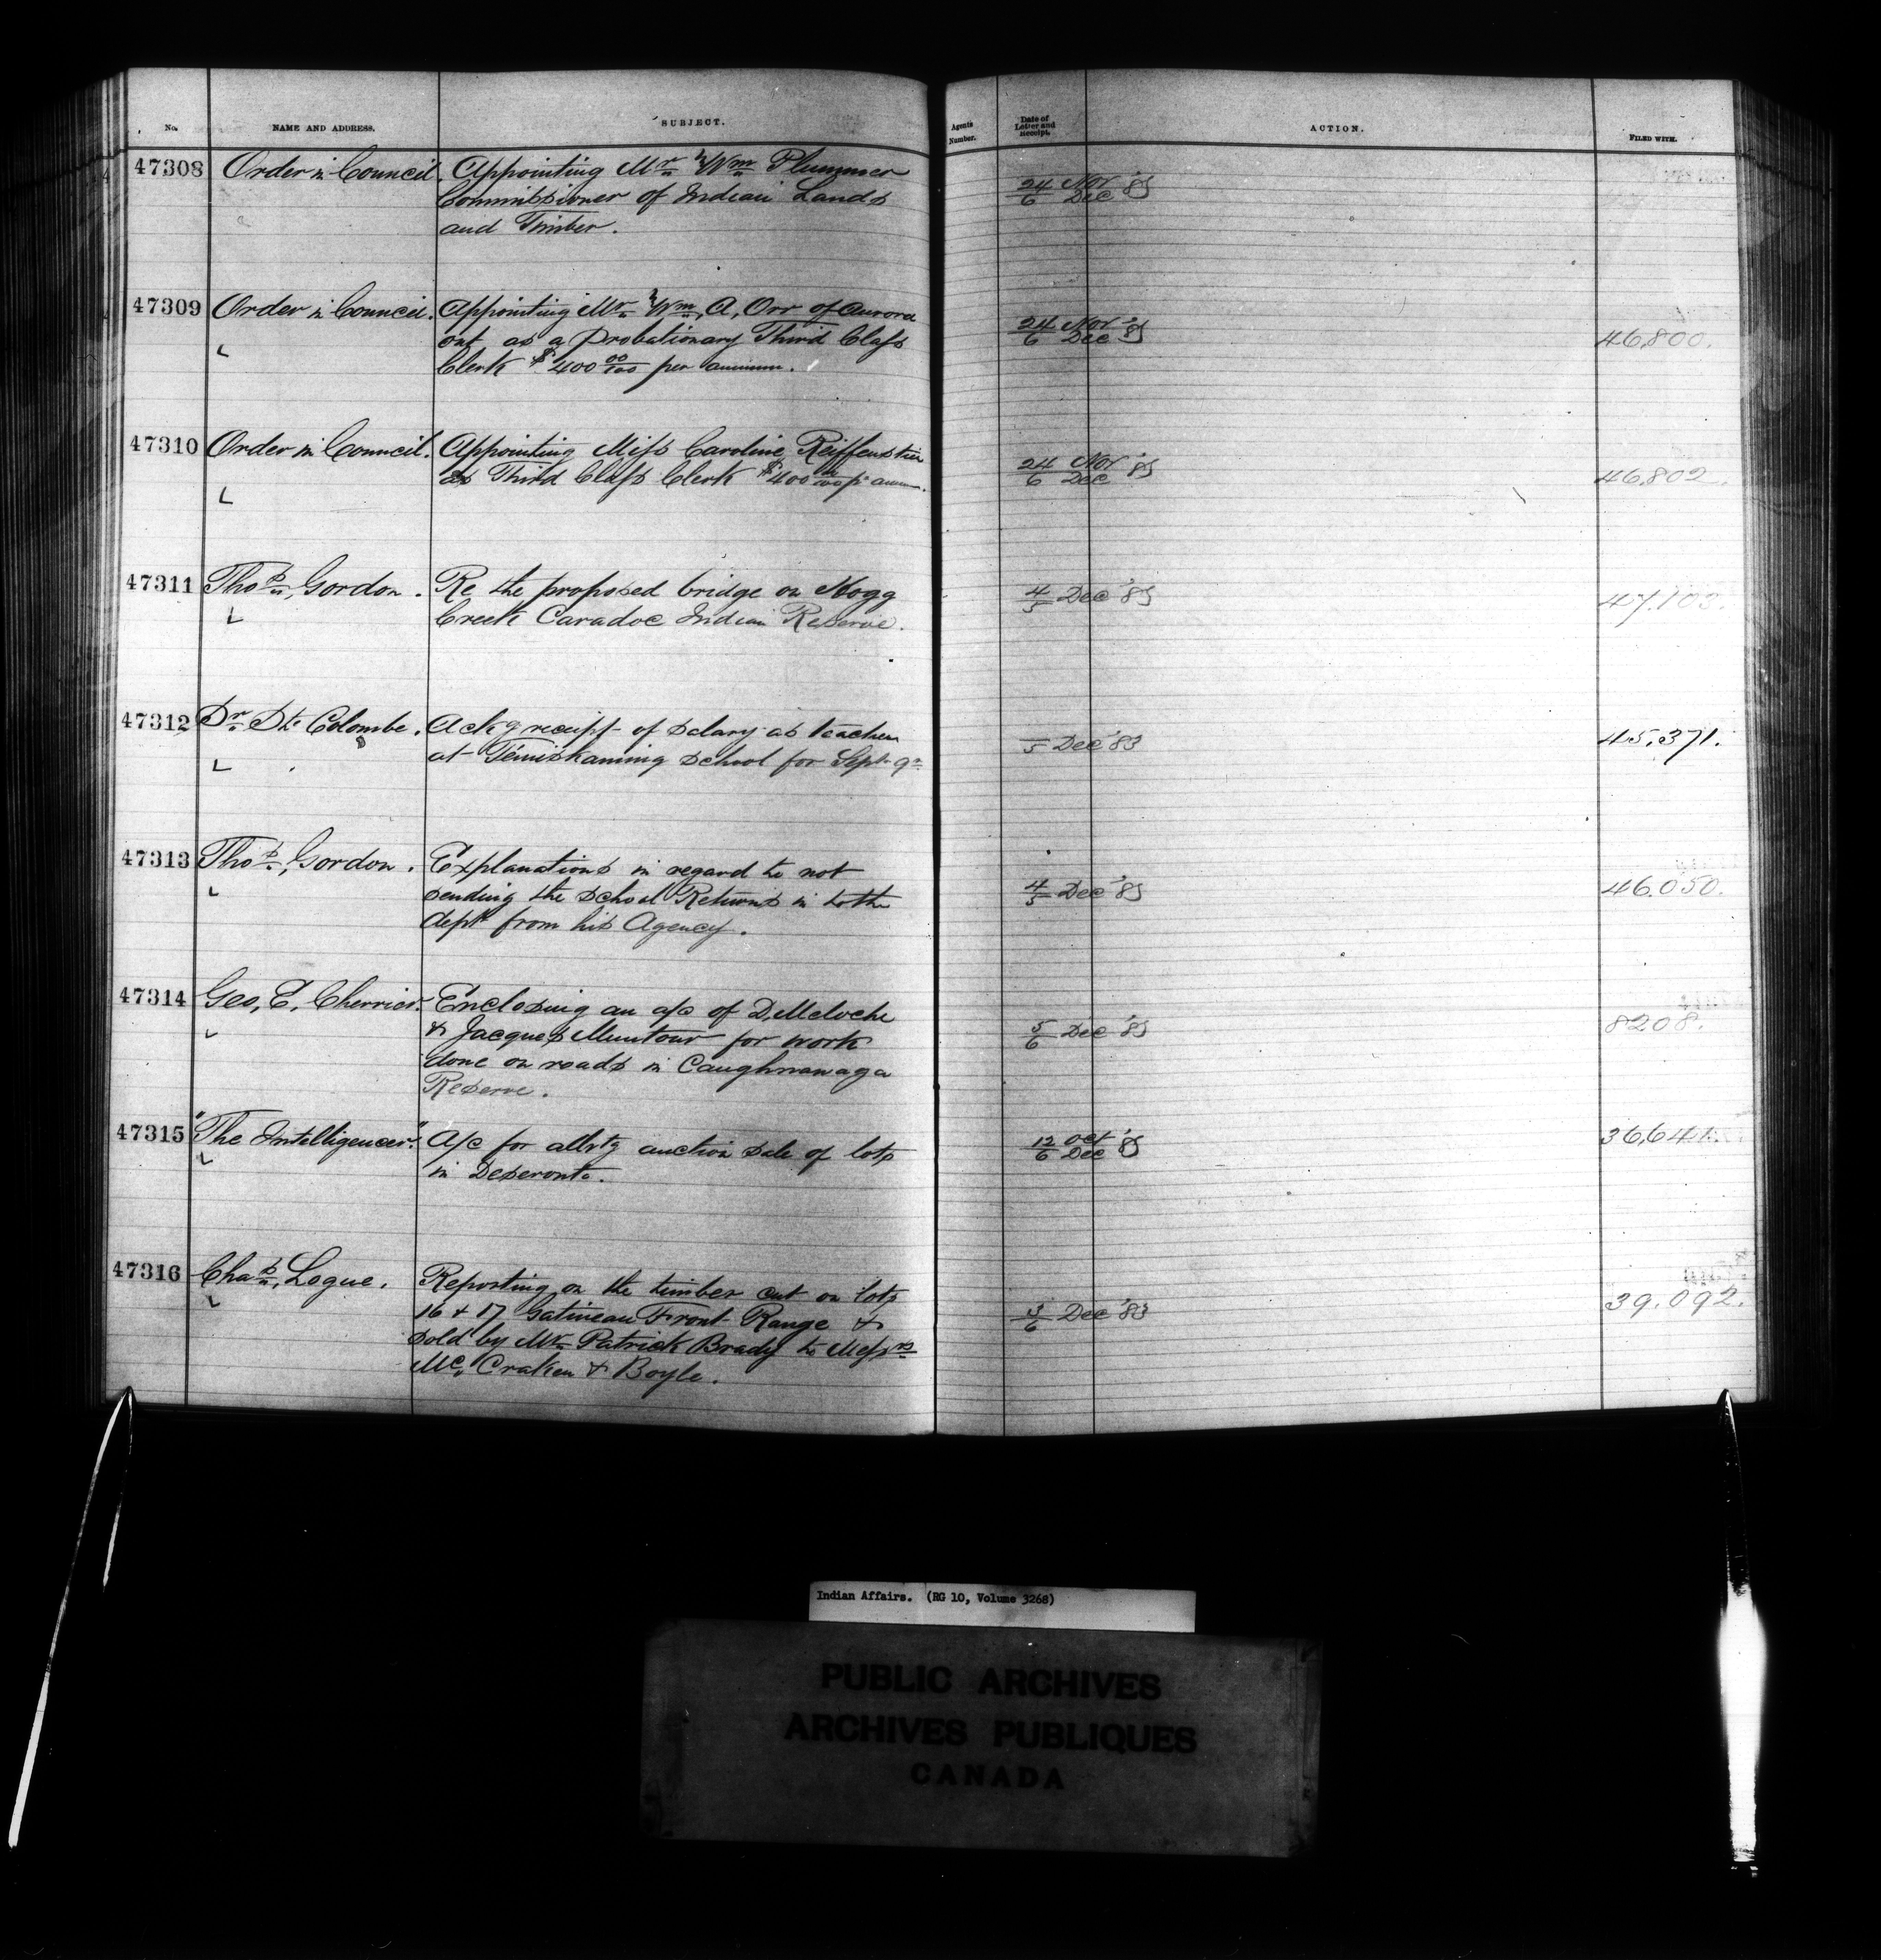 No. NAME AND ADDRESS. SUBJECT. Agents Number. Date of Letter and Receipt. ACTION. FILED WITH.
47308 Order in Council. Appointing Mr Wm Plummer 24/6 Nov Dec '83
Commissioner of Indian Lands
and Timber.
47309 Order in Council. Appointing Mr Wm, A, Orr of Aurora 24/6 Nov Dec '83 46,800.
ont, as a Probationary Third Class
Clerk $400 00/100 per annum.
47310 Order in Council. Appointing Miss Caroline Reiffenstein 24/6 Nov Dec '83 46,802.
as Third Class Clerk $400 00/100 pr annum.
47311 Thos, Gordon. Re the proposed bridge on Hogg 4/5 Dec '83 47.103.
Creek Caradoc Indian Reserve.
47312 Dr Ste Colombe. Ackg receipt of salary as teacher 5 Dec '83 45,371.
at Témiskaming school for Sept qr
47313 Thos, Gordon. Explanations in regard to not 4/5 Dec '83 46.050.
sending the school Returns in to the
dept from his Agency.
47314 Geo, E, Cherrier. Enclosing an a/c of D, Meloche 5/6 Dec '83 8208.
& Jacques Muntour for work
done on roads in Caughnawaga
Reserve.
47315 "The Intelligencer". A/c for advtg auction sale of lots 12/6 Oct Dec '83 36,641.
in Deseronto.
47316 Chas, Logue. Reporting on the timber cut on lots 3/6 Dec '83 39.092.
16 & 17 Gatineau Front Range &
sold by Mr Patrick Brady to Messrs
Mc, Craken & Boyle.
Indian Affairs. (RG 10, Volume 3268)
PUBLIC ARCHIVES
ARCHIVES PUBLIQUES
CANADA